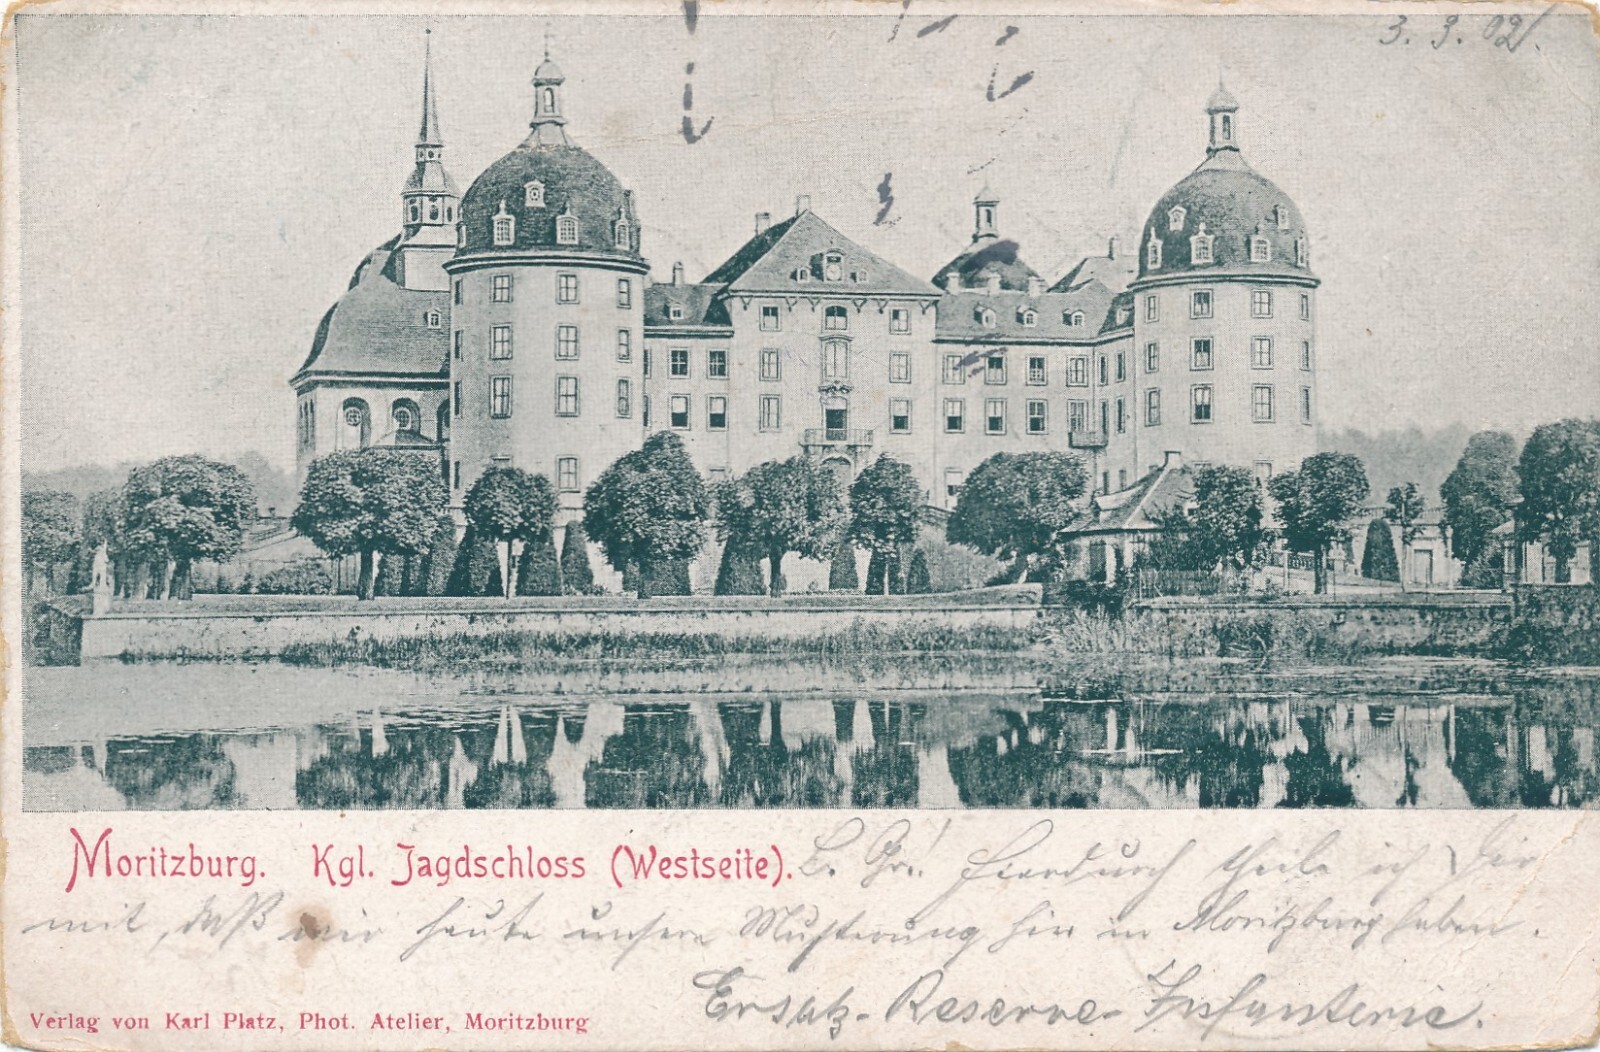 3. 3. 02.
Moritzburg. Kgl. Jagdschloss (Westseite). L. Gr.! Hierdurch theile ich Dir
mit, daß wir heute unsere Musterung hir in Moritzburg haben.
Ersatz-Reserve-Infanterie.
Verlag von Karl Platz, Phot. Atelier, Moritzburg